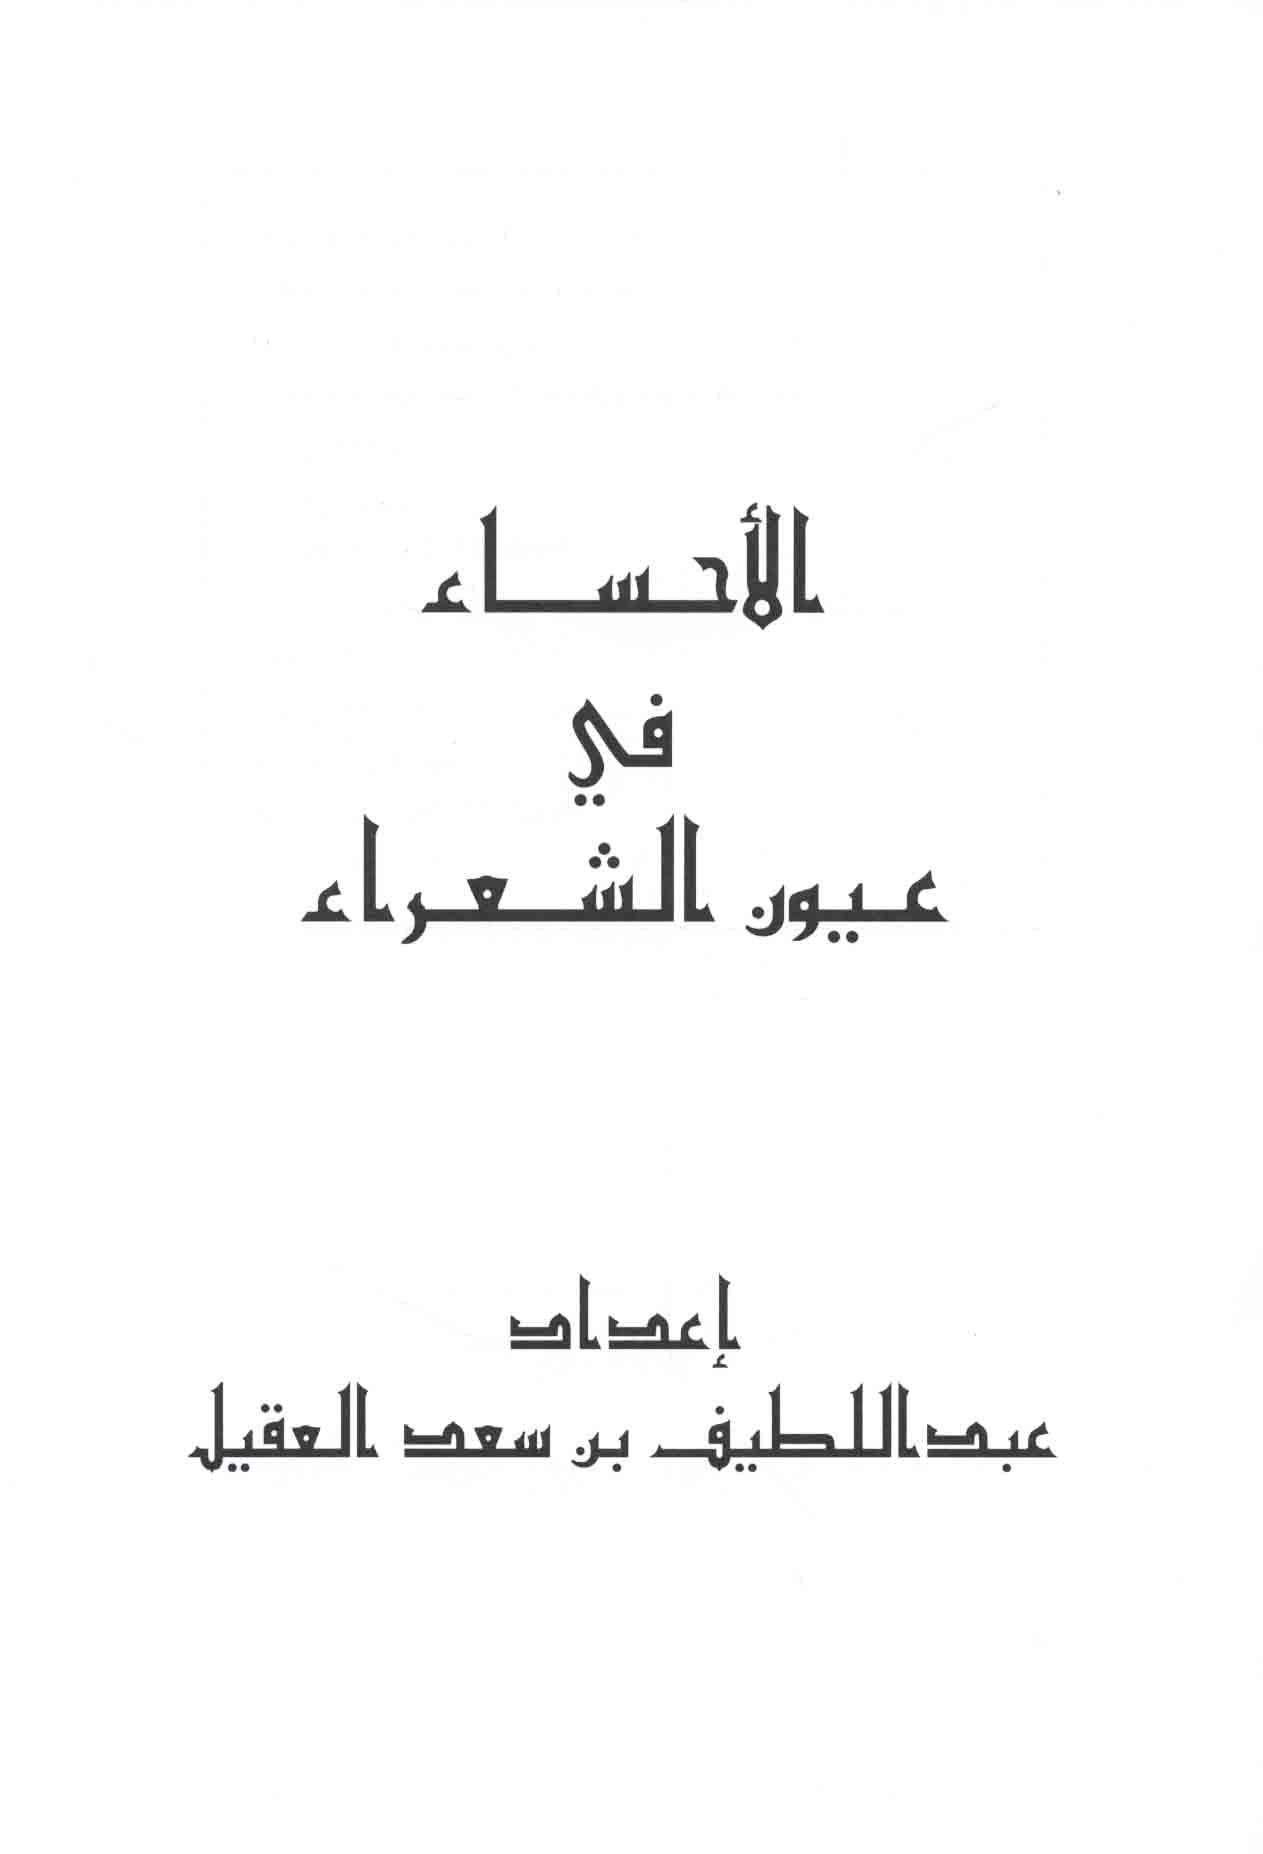 الأحساء
في
عيون الشعراء
إعداد
عبداللطيف بن سعد العقيل